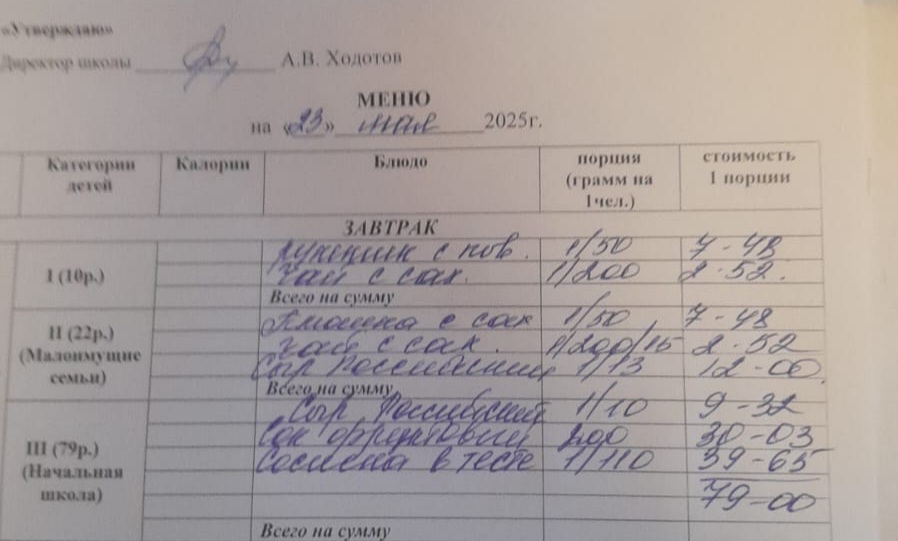 «Утверждаю»
Директор школы А.В. Ходотов
МЕНЮ
на «23» мая 2025г.
Категории детей Калории Блюдо порция (грамм на 1чел.) стоимость 1 порции
ЗАВТРАК
I (10р.)
с пов. 1/50 7-48
чай с сах. 1/200 2-52.
Всего на сумму
II (22р.) (Малоимущие семьи)
с сах 1/50 7-48
чай с сах. 1/200/15 2-52
Сыр Российский 1/13 12-00
Всего на сумму
III (79р.) (Начальная школа)
Сыр Российский 1/10 9-32
Сок фруктовый 200 30-03
Сосиска в тесте 1/110 39-65
79-00
Всего на сумму